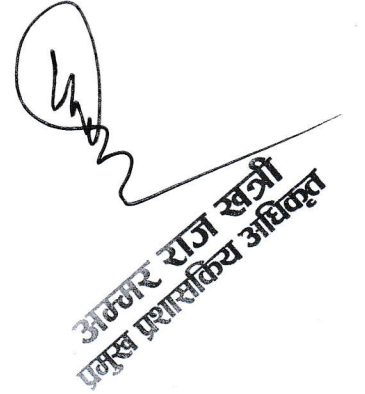 अम्मर राज खत्री
प्रमुख प्रशासकिय अधिकृत